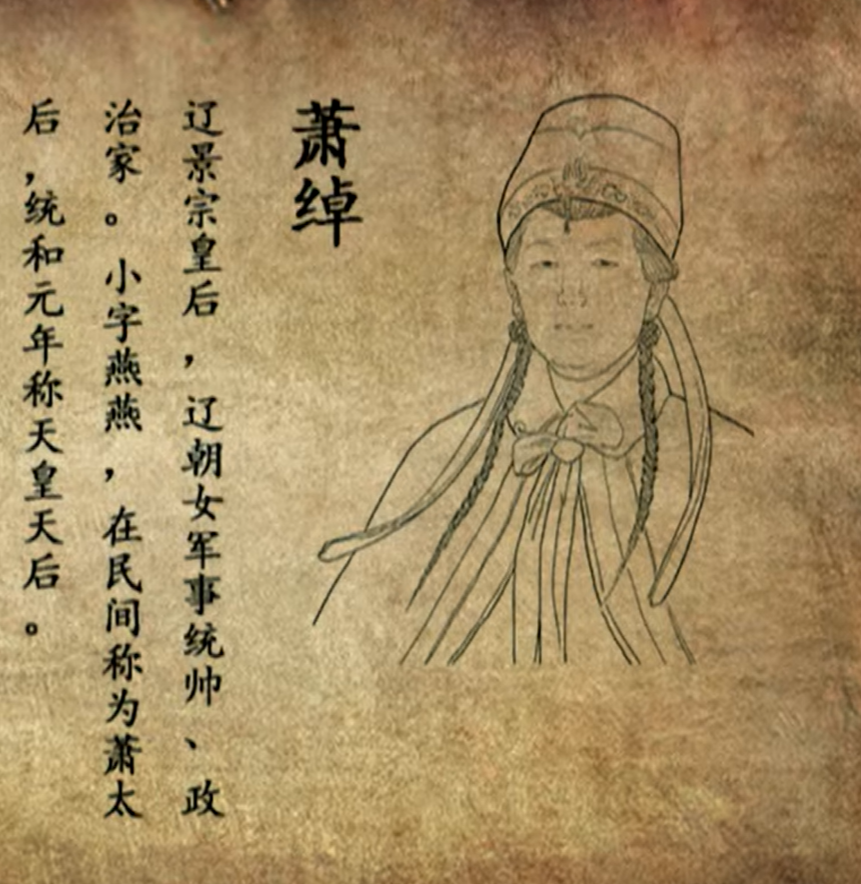 萧绰
辽景宗皇后，辽朝女军事统帅、政
治家。小字燕燕，在民间称为萧太
后，统和元年称天皇天后。